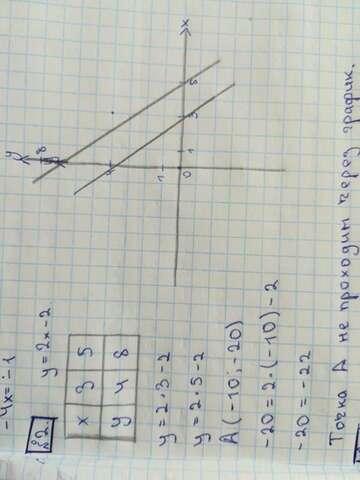 -4x=-1
№2. y=2x-2
x 3 5
y 4 8
y=2·3-2
y=2·5-2
A(-10;-20)
-20=2·(-10)-2
-20=-22
Точка A не проходит через график.
y
8
4
-1
0
1
3
5
x